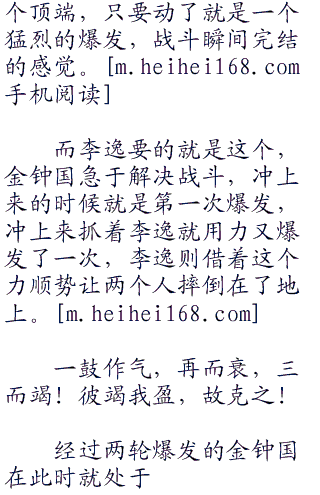 个顶端，只要动了就是一个
猛烈的爆发，战斗瞬间完结
的感觉。[m.heihei168.com
手机阅读]
而李逸要的就是这个，
金钟国急于解决战斗，冲上
来的时候就是第一次爆发，
冲上来抓着李逸就用力又爆
发了一次，李逸则借着这个
力顺势让两个人摔倒在了地
上。[m.heihei168.com]
一鼓作气，再而衰，三
而竭！彼竭我盈，故克之！
经过两轮爆发的金钟国
在此时就处于